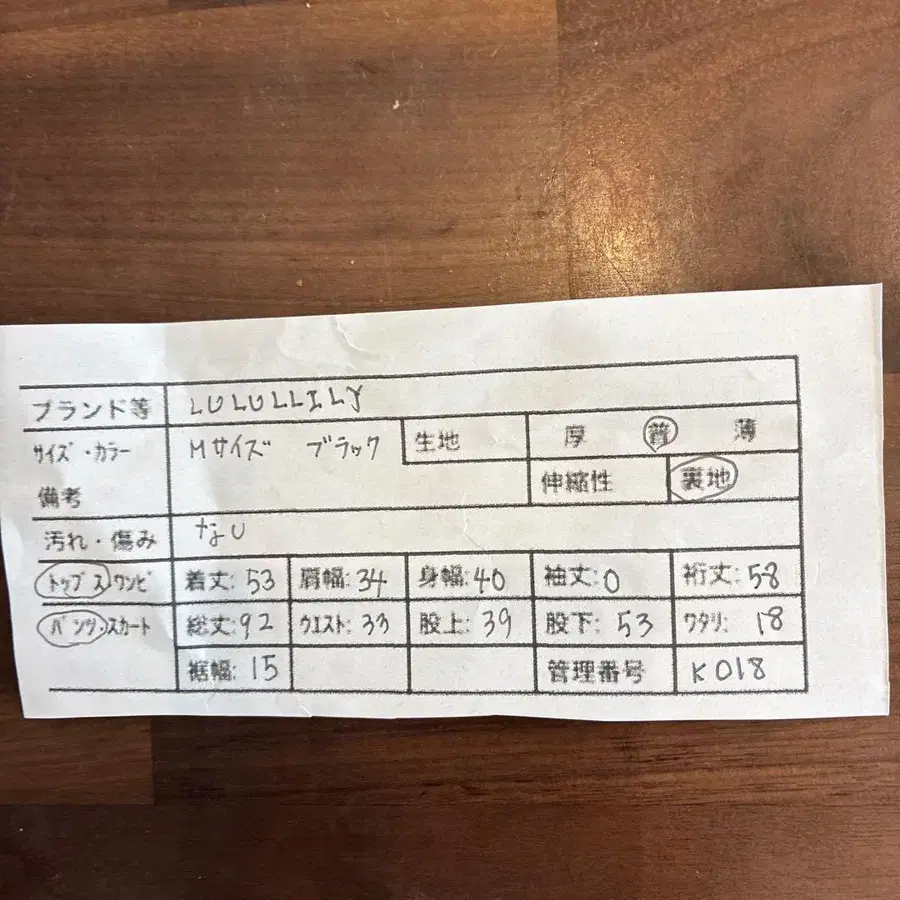 ブランド等 LULULLILY
サイズ・カラー Mサイズ ブラック 生地 厚 普 薄
備考 伸縮性 裏地
汚れ・傷み なし
トップス ワンピ 着丈:53 肩幅:34 身幅:40 袖丈:0 裄丈:58
パンツ スカート 総丈:92 ウエスト:33 股上:39 股下:53 ワタリ:18
裾幅:15 管理番号 K018